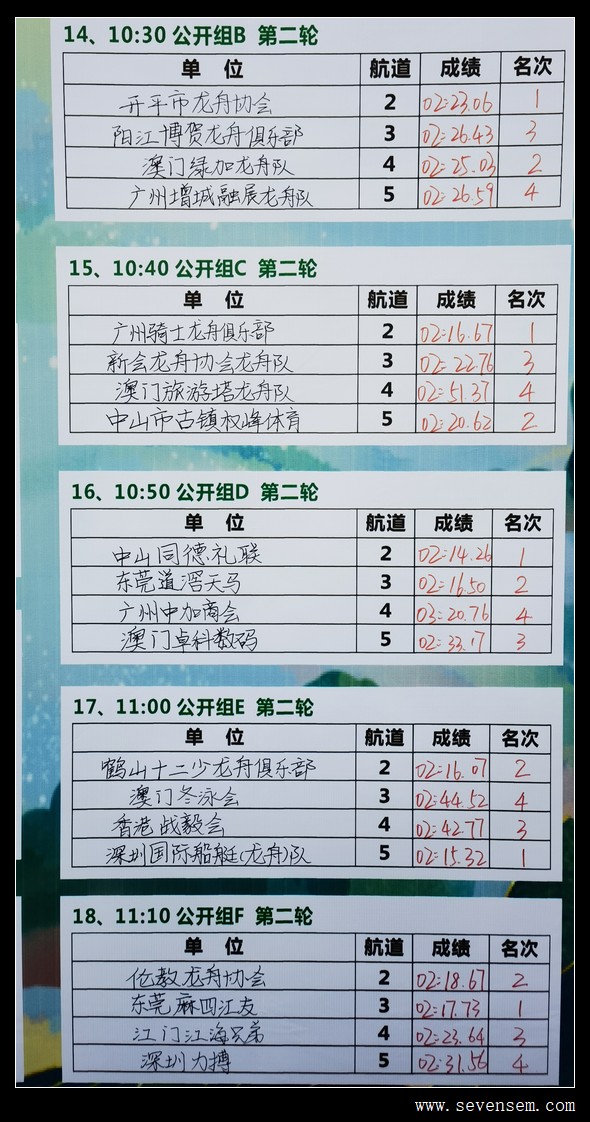 14、10:30 公开组B 第二轮
单 位 航道 成绩 名次
开平市龙舟协会 2 02:23.06 1
阳江博贺龙舟俱乐部 3 02:26.43 3
澳门绿加龙舟队 4 02:25.03 2
广州增城融展龙舟队 5 02:26.59 4
15、10:40 公开组C 第二轮
单 位 航道 成绩 名次
广州骑士龙舟俱乐部 2 02:16.67 1
新会龙舟协会龙舟队 3 02:22.76 3
澳门旅游塔龙舟队 4 02:51.37 4
中山市古镇权峰体育 5 02:20.62 2
16、10:50 公开组D 第二轮
单 位 航道 成绩 名次
中山同德礼联 2 02:14.26 1
东莞道滘天马 3 02:16.50 2
广州中加商会 4 03:20.76 4
澳门卓科数码 5 02:33.17 3
17、11:00 公开组E 第二轮
单 位 航道 成绩 名次
鹤山十二少龙舟俱乐部 2 02:16.07 2
澳门冬泳会 3 02:44.52 4
香港战毅会 4 02:42.77 3
深圳国际船艇(龙舟)队 5 02:15.32 1
18、11:10 公开组F 第二轮
单 位 航道 成绩 名次
伦教龙舟协会 2 02:18.67 2
东莞麻四江友 3 02:17.73 1
江门江海兄弟 4 02:23.64 3
深圳力搏 5 02:31.56 4
www.sevensem.com